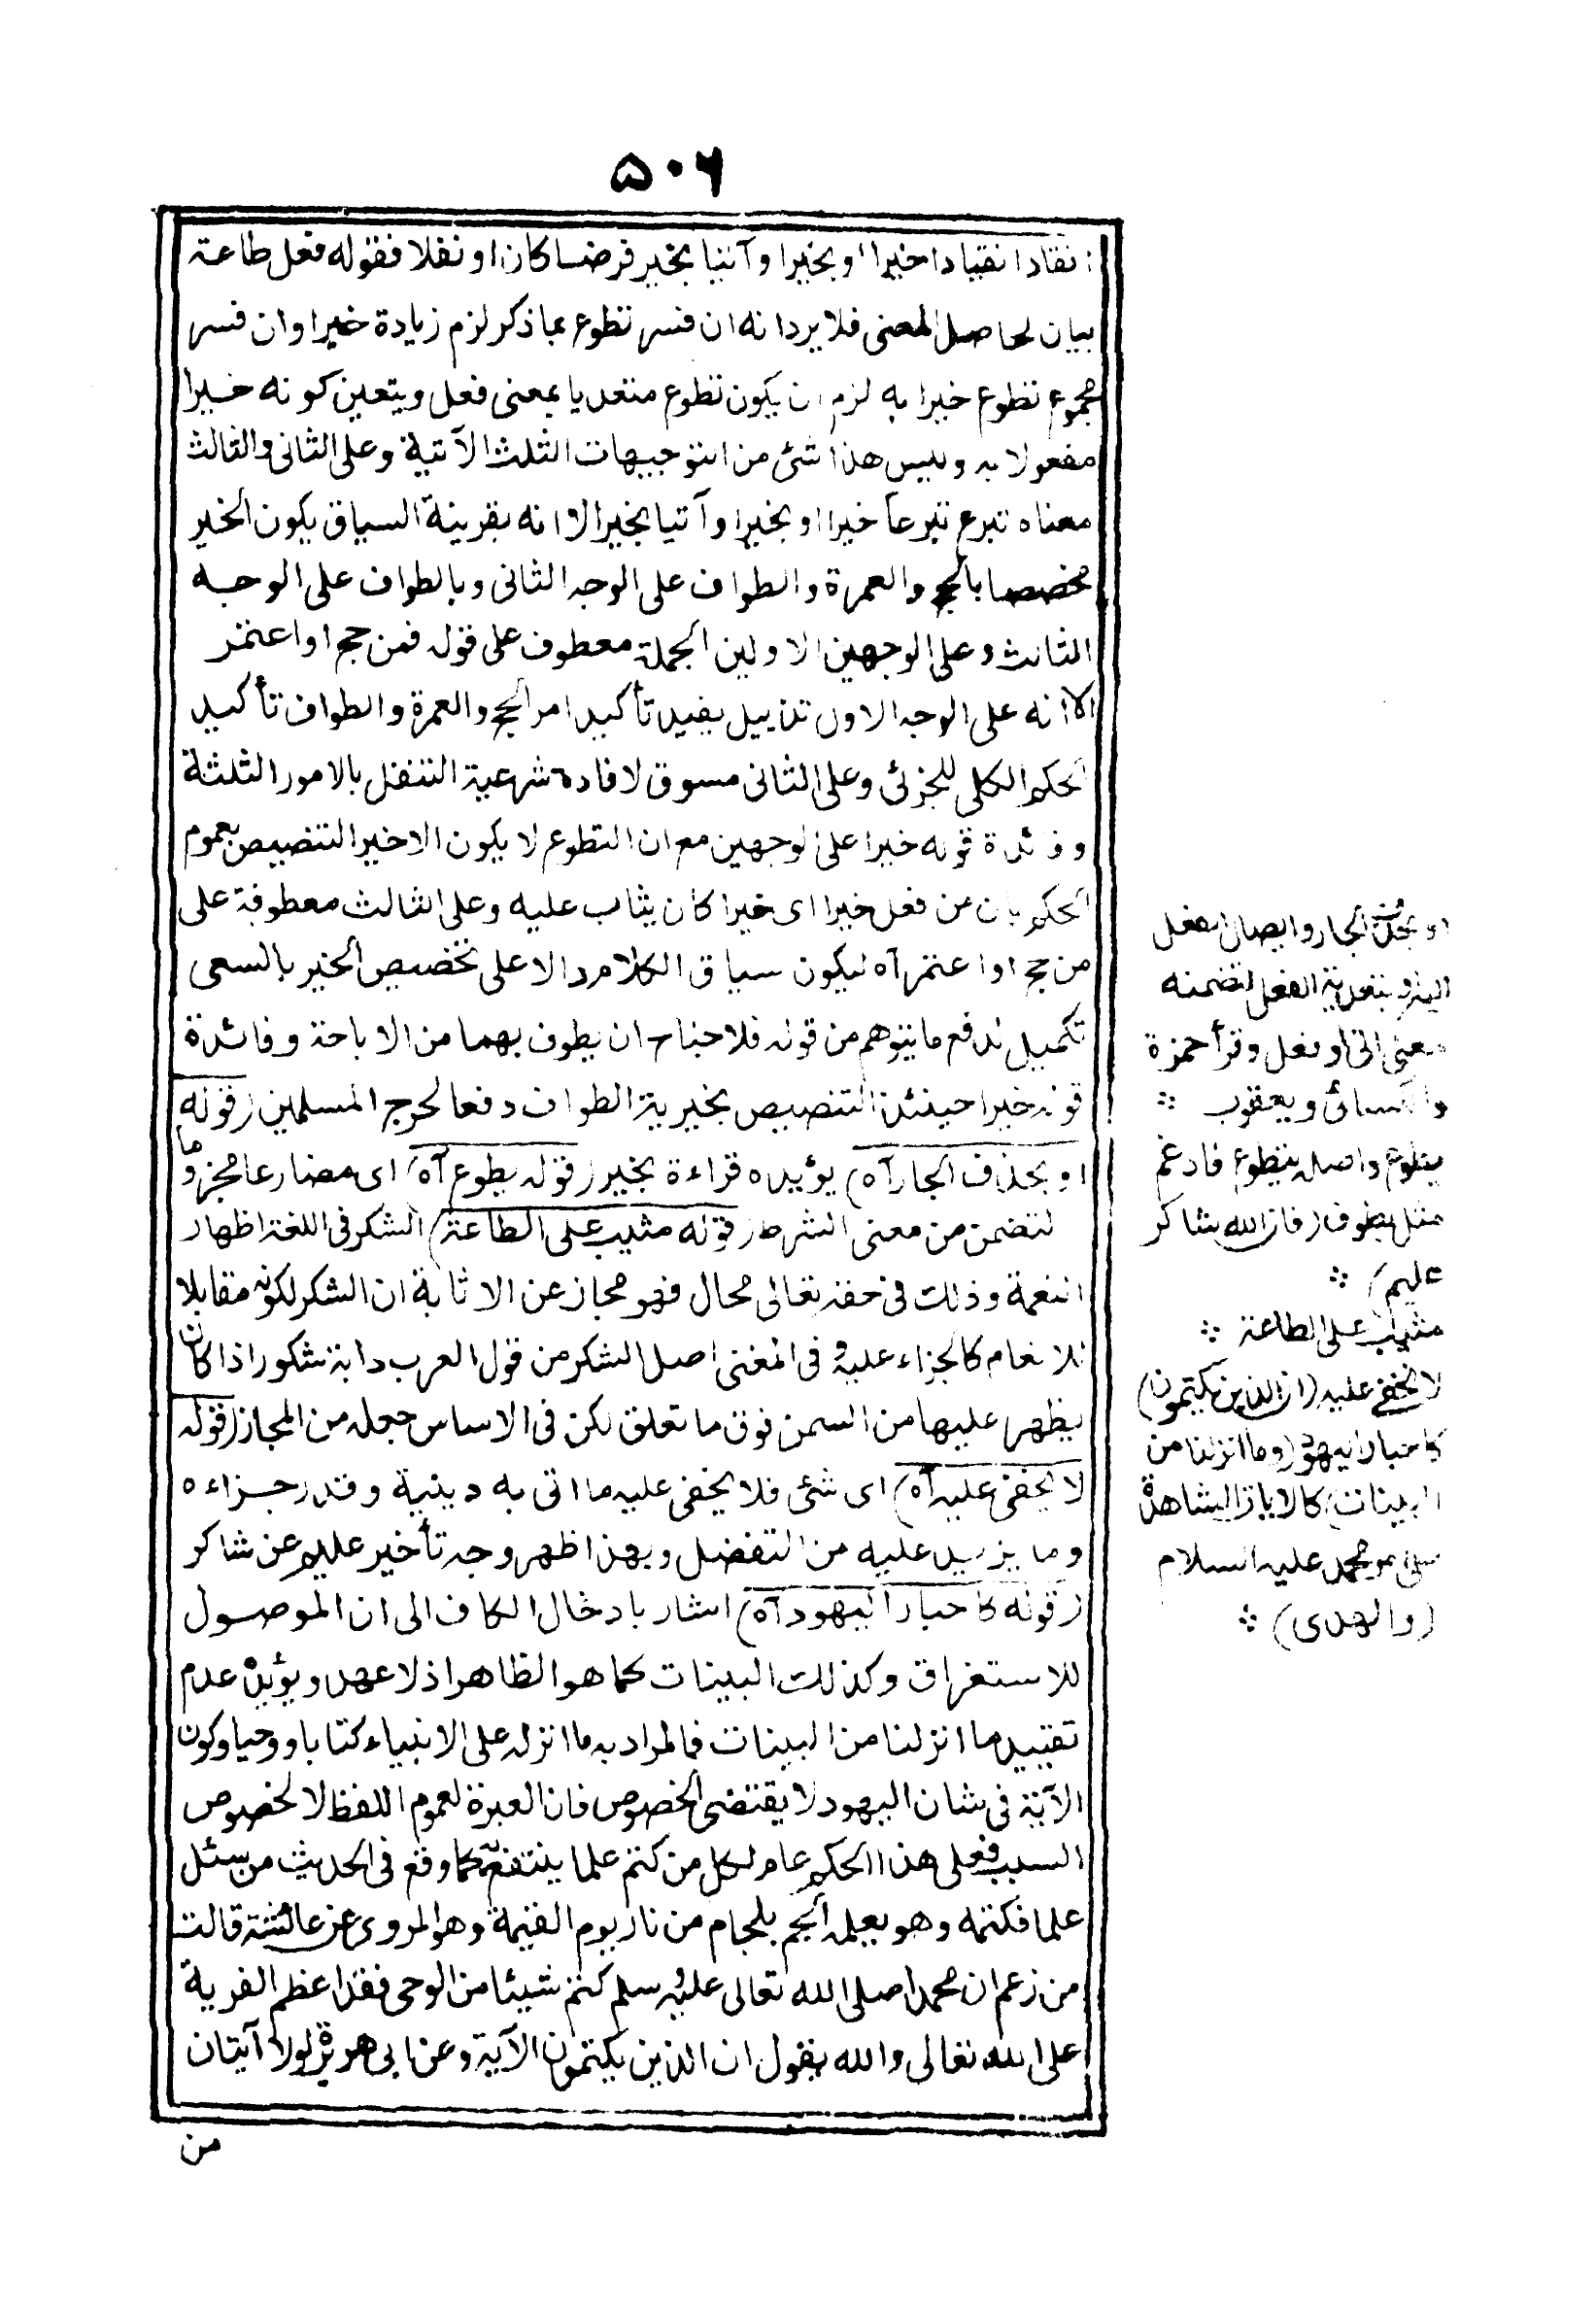 ٥٠٦
انقاد انقيادا خيرا او بخير او آتيا بخير فرضا كان او نفلا فقوله فعل طاعة
بيان لحاصل المعنى فلا يرد انه ان فسر تطوع بما ذكر لزم زيادة خيرا وان فسر
مجموع تطوع خيرا به لزم ان يكون تطوع متعديا بمعنى فعل ويتعين كونه خيرا
مفعولا به وليس هذا شئ من التوجيهات الثلث الآتية وعلى الثانى والثالث
معناه تبرع تبرعا خيرا او بخير او آتيا بخير الا انه بقرينة السياق يكون الخير
مخصصا بالحج والعمرة والطواف على الوجه الثانى وبالطواف على الوجه
الثالث وعلى الوجهين الاولين الجملة معطوف على قوله فمن حج او اعتمر
الا انه على الوجه الاول تذييل يفيد تأكيد امر الحج والعمرة والطواف تأكيد
الحكم الكلى للجزئى وعلى الثانى مسوق لافادة شرعية التنفل بالامور الثلثة
وفائدة قوله خيرا على الوجهين مع ان التطوع لا يكون الا خيرا التنصيص بعموم
الحكم بان من فعل خيرا اى خير كان يثاب عليه وعلى الثالث معطوفة على
من حج او اعتمر آه ليكون سياق الكلام دالا على تخصيص الخير بالسعى
تكميل لدفع ما يتوهم من قوله فلا جناح ان يطوف بهما من الاباحة وفائدة
قوله خيرا حينئذ التنصيص بخيرية الطواف دفعا لحرج المسلمين (قوله
او بحذف الجار آه) يؤيده قراءة بخير (قوله يطوع آه) اى مضارعا مجزوما
لتضمن من معنى الشرط (قوله مثيب على الطاعة) الشكر فى اللغة اظهار
النعمة وذلك فى حقه تعالى محال فهو مجاز عن الاثابة ان الشكر لكونه مقابلا
للانعام كالجزاء عليه وفى المغنى اصل الشكر من قول العرب دابة شكور اذا كان
يظهر عليها من السمن فوق ما تعلق لكن فى الاساس جعله من المجاز (قوله
لا يخفى عليه آه) اى شئ فلا يخفى عليه ما اتى به دينية وقدر جزاءه
وما يزيد عليه من التفضل وبهذا ظهر وجه تأخير عليم عن شاكر
(قوله كاحبار اليهود آه) اشار بادخال الكاف الى ان الموصول
للاستغراق وكذلك البينات كما هو الظاهر اذ لا عهد ويؤيده عدم
تقييد ما انزلنا من البينات فالمراد به ما انزله على الانبياء كتابا و وحيا وكون
الآية فى شان اليهود لا يقتضى الخصوص فان العبرة لعموم اللفظ لا لخصوص
السبب فعلى هذا الحكم عام لكل من كتم علما ينتفع به كما وقع فى الحديث من سئل
علما فكتمه وهو يعلمه الجم بلجام من نار يوم القيمة وهو المروى عن عائشة قالت
من زعم ان محمدا صلى الله تعالى عليه وسلم كتم شيئا من الوحى فقد اعظم الفرية
على الله تعالى والله يقول ان الذين يكتمون الآية وعن ابى هريرة لولا آيتان
من
او بحذف الجار وايصال الفعل
اليه او بتعدية الفعل لتضمنه
معنى اتى او فعل وقرأ حمزة
والكسائى ويعقوب
يطوع واصله يتطوع فادغم
مثل يطوف (فان الله شاكر
عليم)
مثيب على الطاعة
لا يخفى عليه (ان الذين يكتمون)
كاحبار اليهود (وما انزلنا من
البينات) كالايات الشاهدة
على امر محمد عليه السلام
(والهدى)